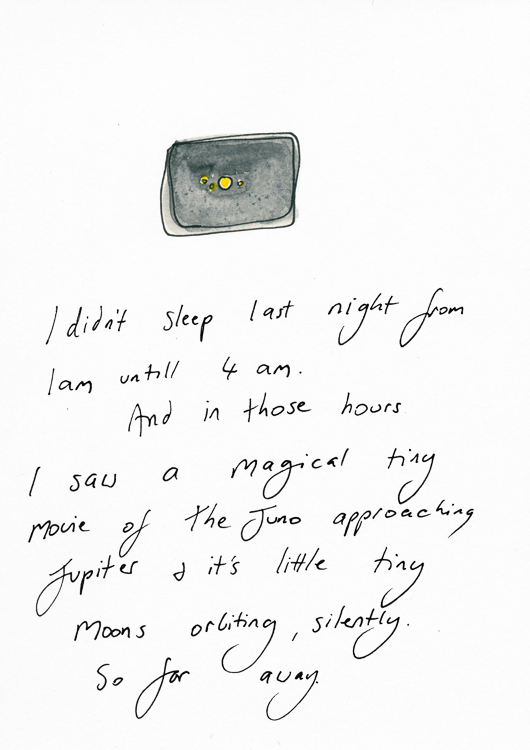 I didn't sleep last night from
1am untill 4 am.
And in those hours
I saw a magical tiny
movie of the Juno approaching
Jupiter & it's little tiny
moons orbiting, silently.
So far away.